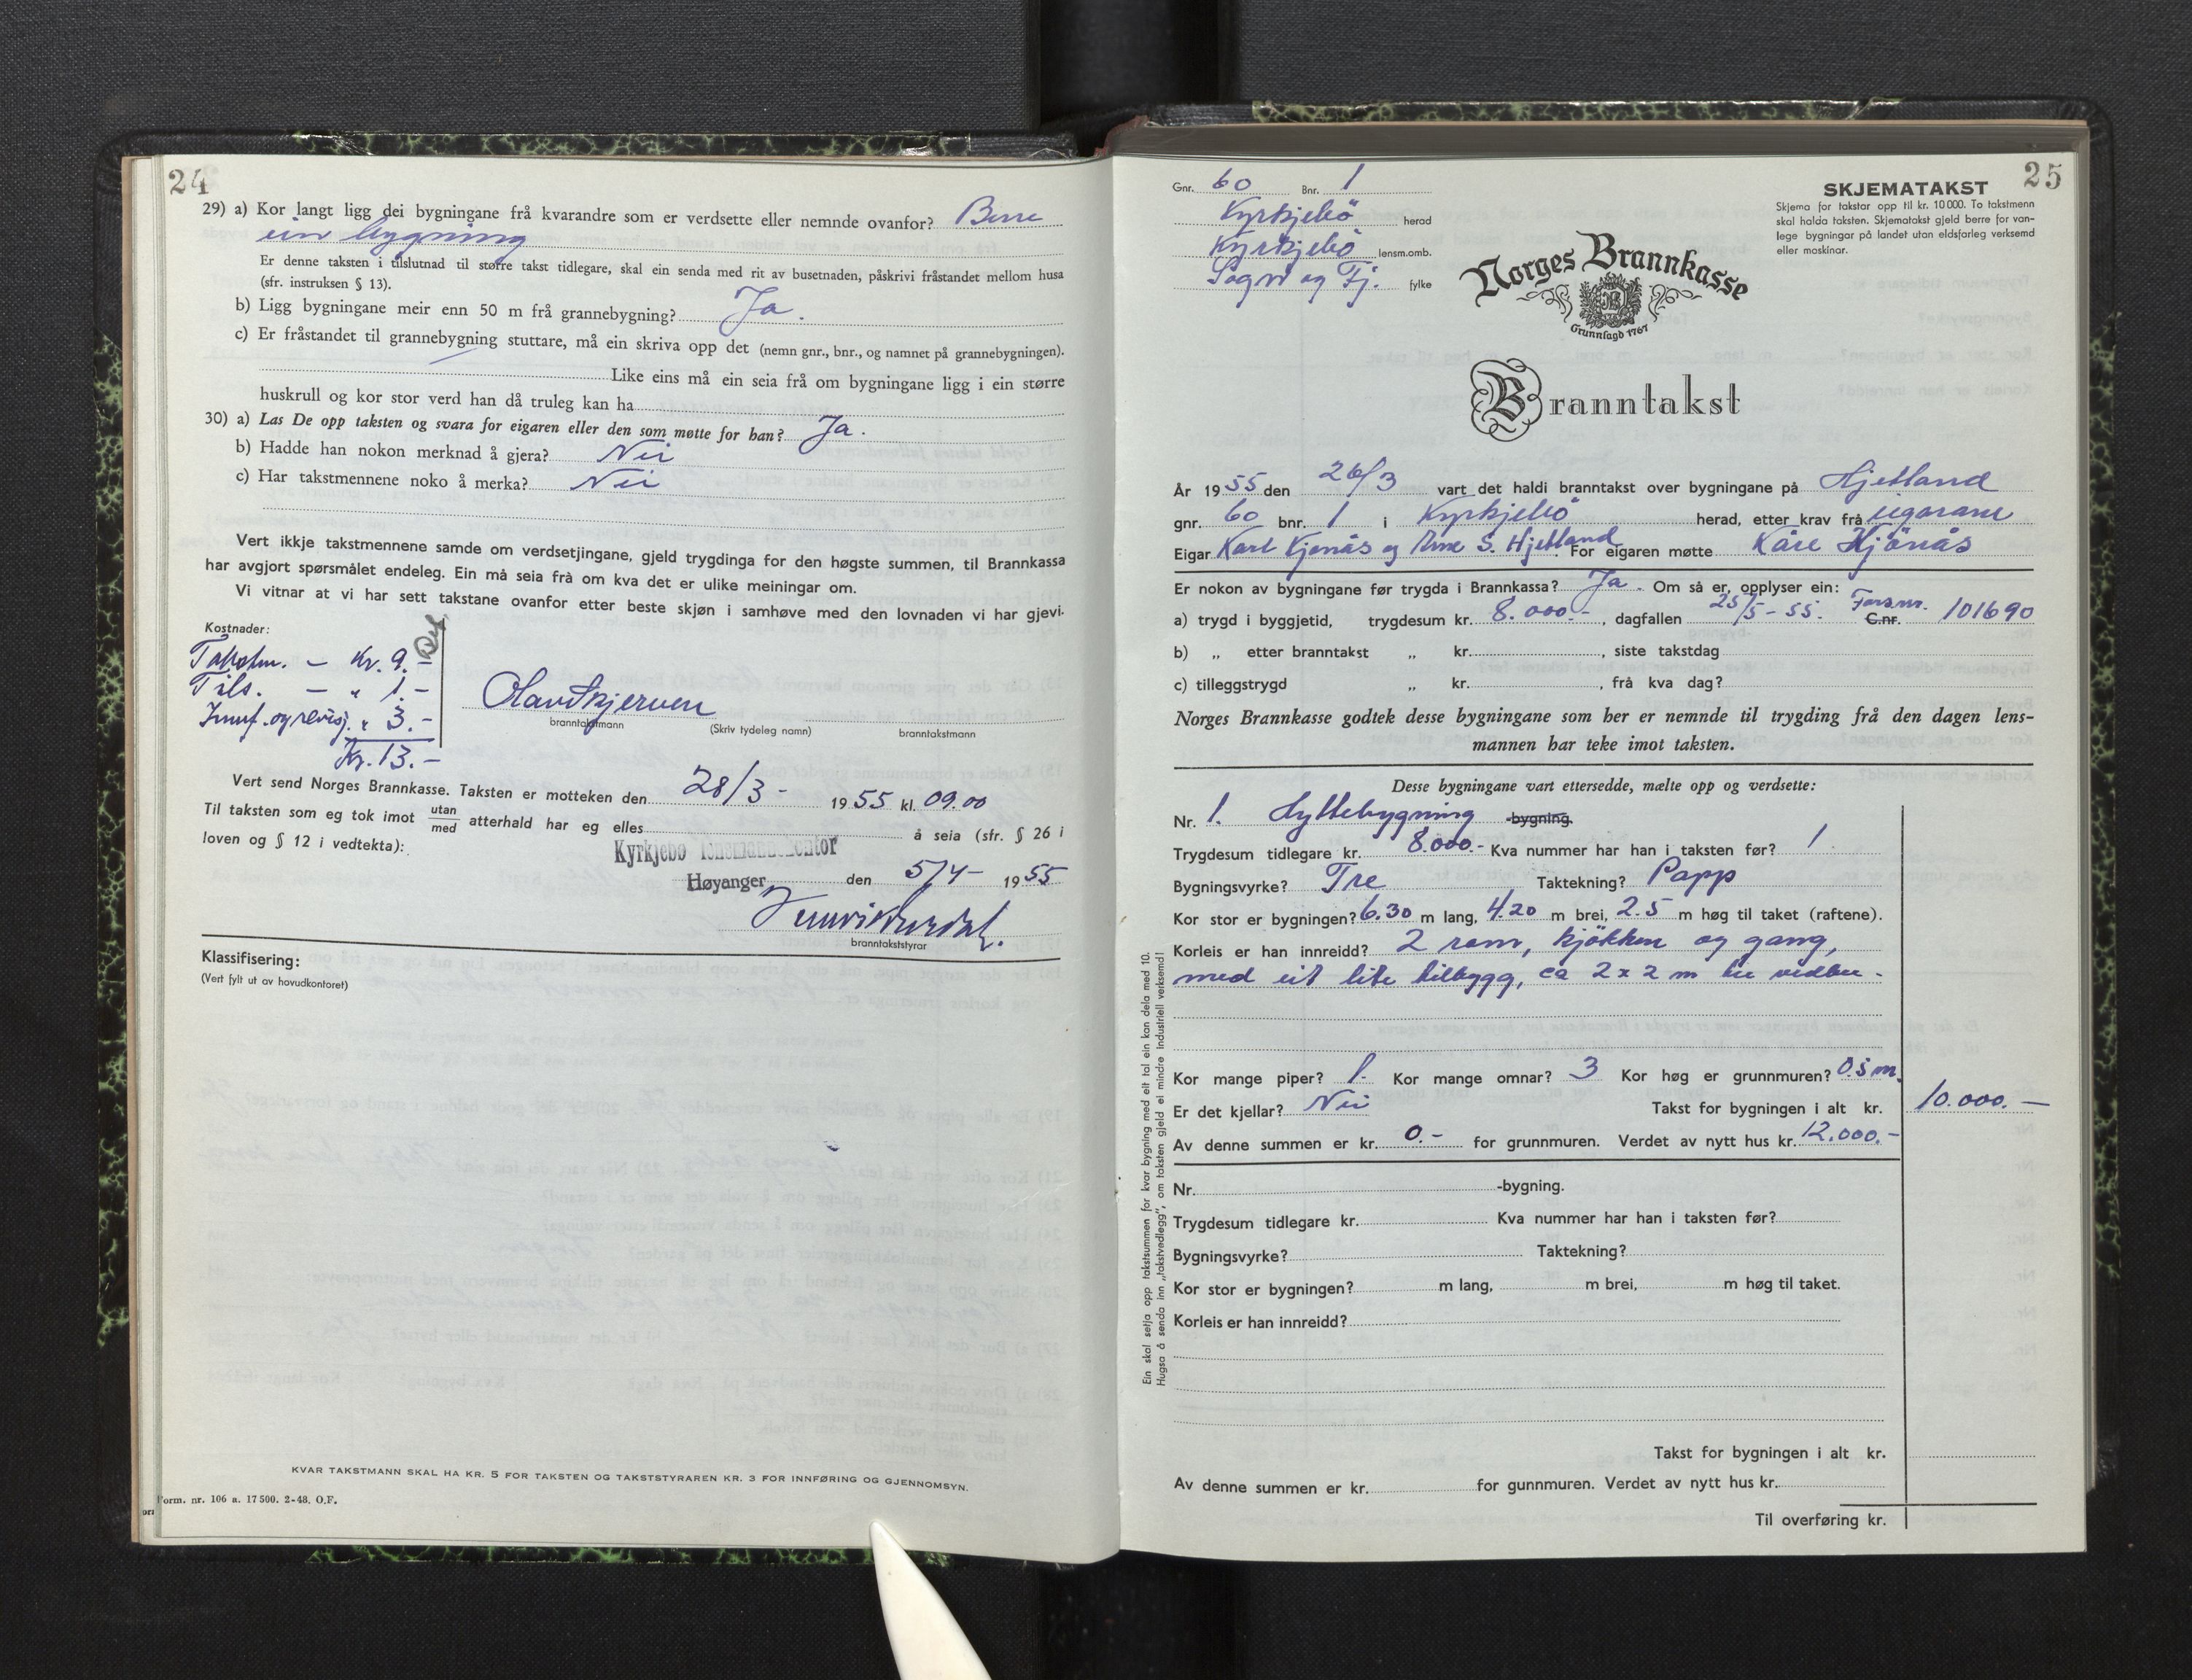 24
29) a) Kor langt ligg dei bygningane frå kvarandre som er verdsette eller nemnde ovanfor? Berre
ein bygning
Er denne taksten i tilslutnad til større takst tidlegare, skal ein senda med rit av busetnaden, påskrivi fråstandet mellom husa
(sfr. instruksen § 13).
b) Ligg bygningane meir enn 50 m frå grannebygning? Ja.
c) Er fråstandet til grannebygning stuttare, må ein skriva opp det (nemn gnr., bnr., og namnet på grannebygningen).
Like eins må ein seia frå om bygningane ligg i ein større
huskrull og kor stor verd han då truleg kan ha
30) a) Las De opp taksten og svara for eigaren eller den som møtte for han? Ja.
b) Hadde han nokon merknad å gjera? Nei
c) Har takstmennene noko å merka? Nei
Vert ikkje takstmennene samde om verdsetjingane, gjeld trygdinga for den høgste summen, til Brannkassa
har avgjort spørsmålet endeleg. Ein må seia frå om kva det er ulike meiningar om.
Vi vitnar at vi har sett takstane ovanfor etter beste skjøn i samhøve med den lovnaden vi har gjevi.
Kostnader:
Takstm. — Kr. 9.—
Tils. — " 1.—
Innf. og revisj. " 3.—
Kr. 13.—
branntakstmann (Skriv tydeleg namn) branntakstmann
Vert send Norges Brannkasse. Taksten er motteken den 28/3 - 1955 kl. 09.00
Til taksten som eg tok imot utan/med atterhald har eg elles å seia (sfr. § 26 i
loven og § 12 i vedtekta):
Kyrkjebø lensmannskontor
Høyanger den 5/4 - 1955
branntakststyrar
Klassifisering:
(Vert fylt ut av hovudkontoret)
KVAR TAKSTMANN SKAL HA KR. 5 FOR TAKSTEN OG TAKSTSTYRAREN KR. 3 FOR INNFØRING OG GJENNOMSYN.
Form. nr. 106 a. 17 500. 2-48. O.F.
25
Gnr. 60 Bnr. 1
Kyrkjebö herad
Kyrkjebö lensm.omb.
Sogn og Fj. fylke
SKJEMATAKST
Skjema for takstar opp til kr. 10 000. To takstmenn
skal halda taksten. Skjematakst gjeld berre for van-
lege bygningar på landet utan eldsfarleg verksemd
eller maskinar.
Norges Brannkasse
Grunnlagd 1767
Branntakst
År 1955 den 26/3 vart det haldi branntakst over bygningane på Hjetland
gnr. 60 bnr. 1 i Kyrkjebö herad, etter krav frå eigarane
Eigar Karl Kjönås og Arne S. Hjetland For eigaren møtte Kåre Hjönås
Er nokon av bygningane før trygda i Brannkassa? Ja. Om så er, opplyser ein:
a) trygd i byggjetid, trygdesum kr. 8.000.-, dagfallen 25/5 - 55. Forsnr. C.nr. 101690
b) „ etter branntakst „ kr. , siste takstdag
c) tilleggstrygd „ kr. , frå kva dag?
Norges Brannkasse godtek desse bygningane som her er nemnde til trygding frå den dagen lens-
mannen har teke imot taksten.
Desse bygningane vart ettersedde, mælte opp og verdsette:
Nr. 1. Hyttebygning -bygning.
Trygdesum tidlegare kr. 8.000.- Kva nummer har han i taksten før? 1
Bygningsvyrke? Tre Taktekning? Papp
Kor stor er bygningen? 6.30 m lang, 4.20 m brei, 2.5 m høg til taket (raftene).
Korleis er han innreidd? 2 rom, kjökken og gang,
med eit lite tilbygg, ca 2 x 2 m til vedbu.
Kor mange piper? 1. Kor mange omnar? 3 Kor høg er grunnmuren? 0.5 m.
Er det kjellar? Nei Takst for bygningen i alt kr. 10.000.—
Av denne summen er kr. 0.- for grunnmuren. Verdet av nytt hus kr. 12.000.-
Nr. -bygning.
Trygdesum tidlegare kr. Kva nummer har han i taksten før?
Bygningsvyrke? Taktekning?
Kor stor er bygningen? m lang, m brei, m høg til taket.
Korleis er han innreidd?
Takst for bygningen i alt kr.
Av denne summen er kr. for gunnmuren. Verdet av nytt hus kr.
Til overføring kr.
Ein skal setja opp takstsummen for kvar bygning med eit tal ein kan dela med 10.
Hugsa å senda inn „takstvedlegg", om taksten gjeld ei mindre industriell verksemd!